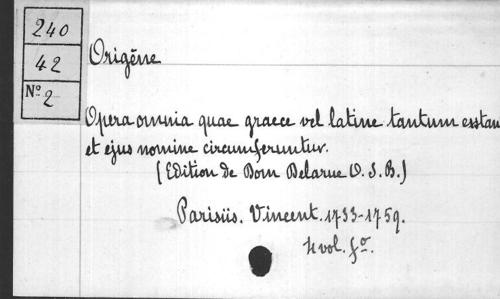 240
42
Nº 2
Origène
Opera omnia quae graece vel latine tantum exstan
et ejus nomine circumferuntur.
(Edition de Dom Delarue O. S. B.)
Parisiis. Vincent. 1733-1759.
4 vol. fº.